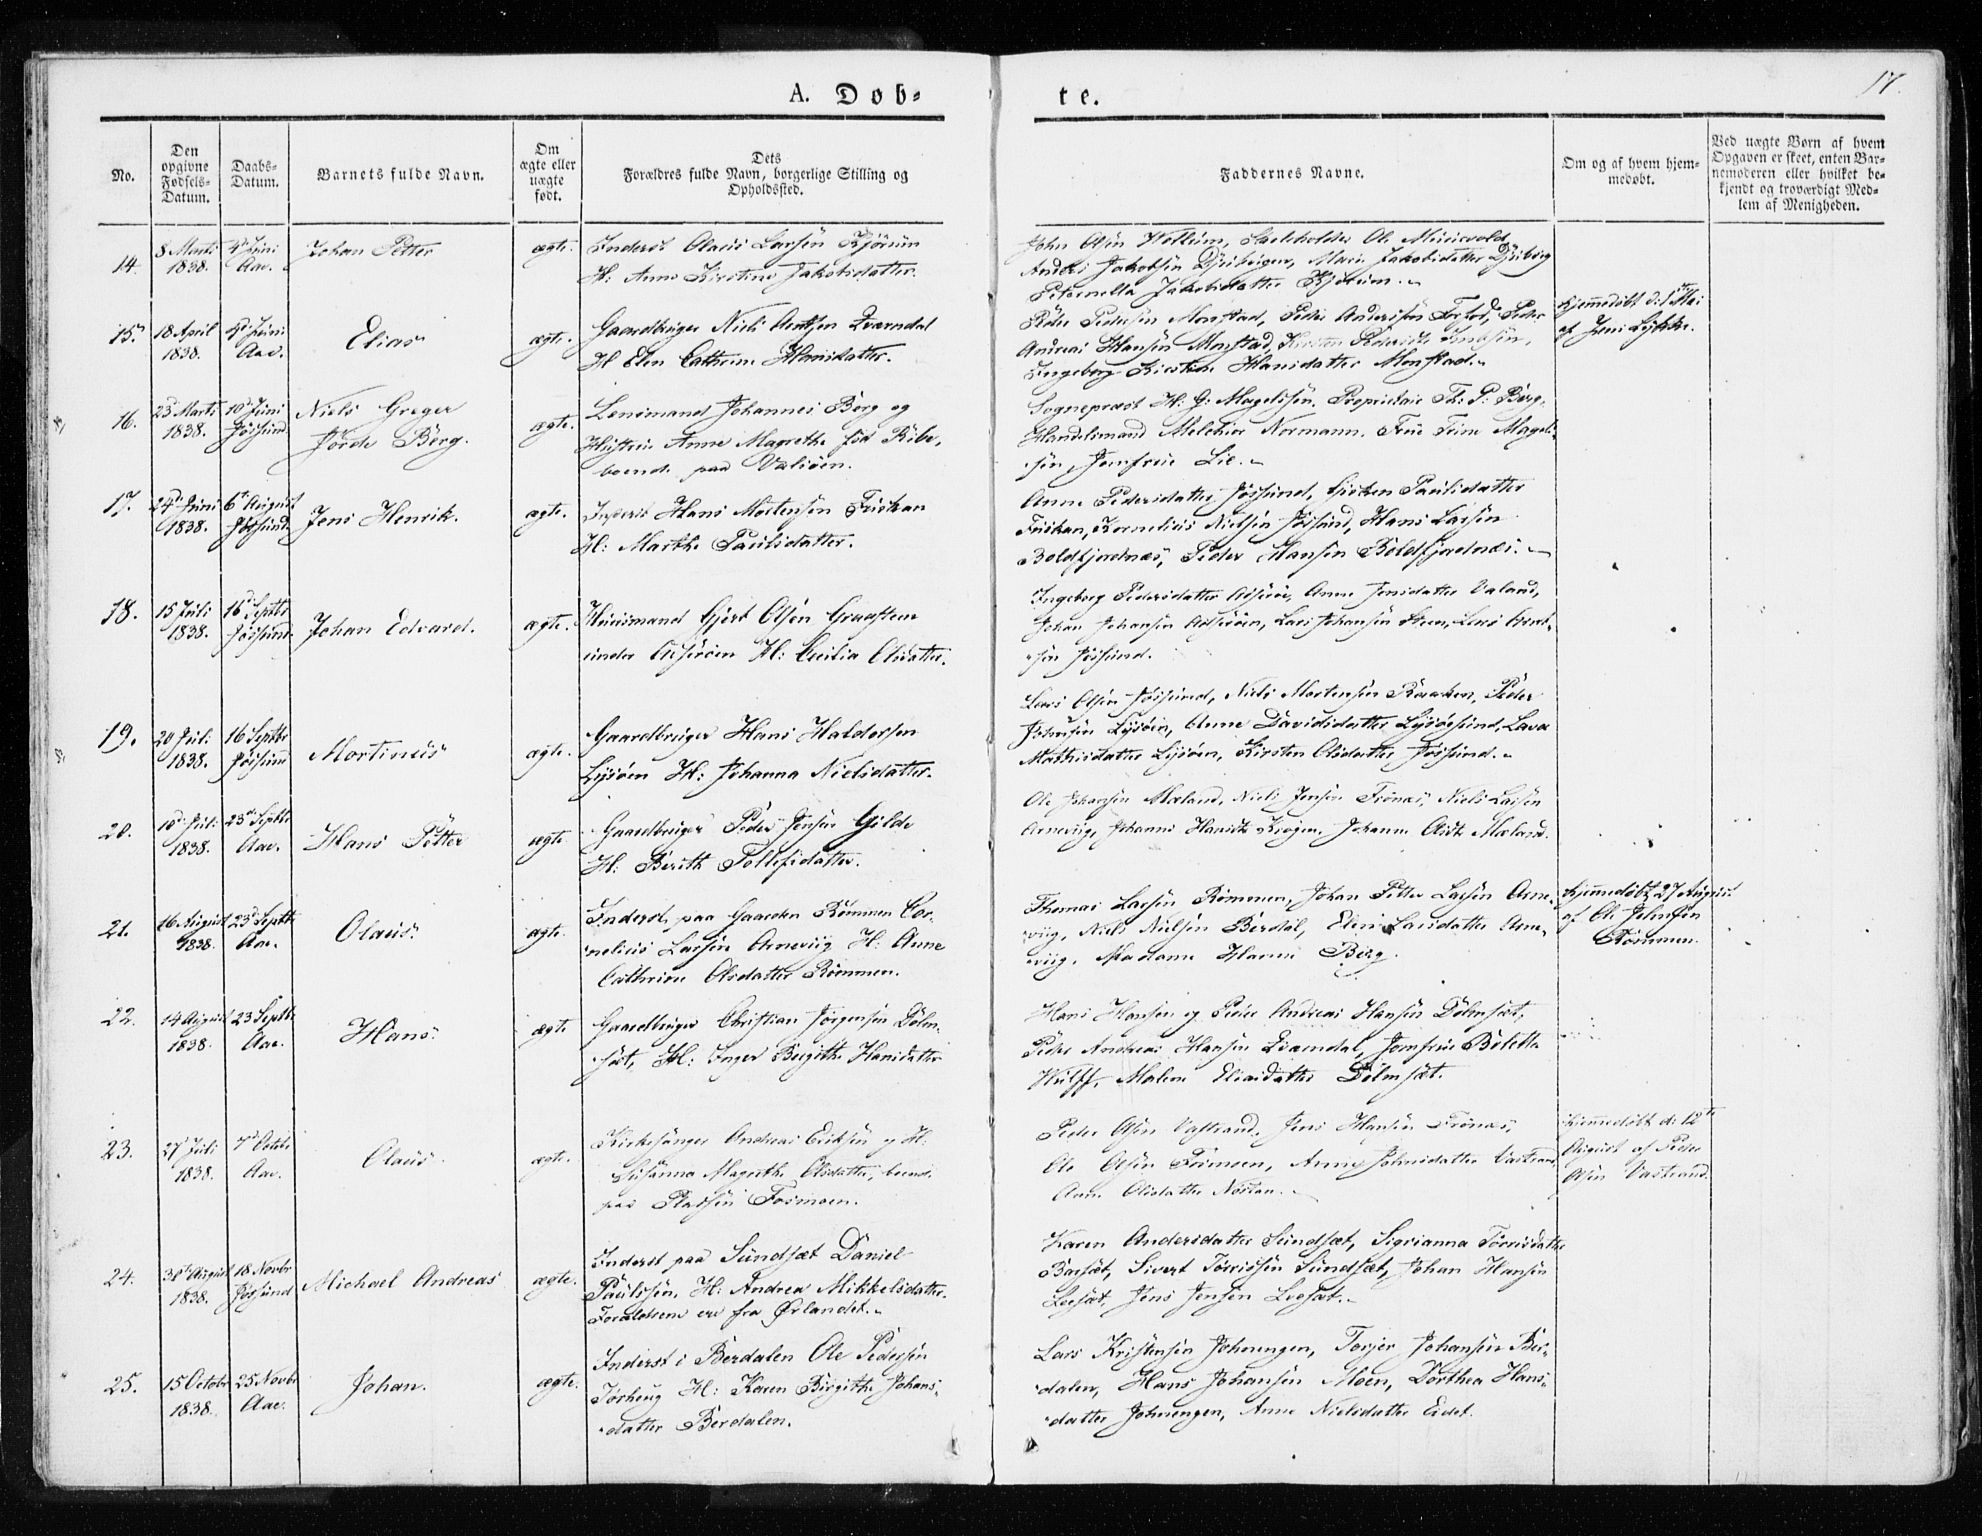 17.
A. Døb-
te.
No.
Den opgivne Fødsels-Datum.
Daabs-Datum.
Barnets fulde Navn.
Om ægte eller uægte født.
Dets
Forældres fulde Navn, borgerlige Stilling og
Opholdssted.
Faddernes Navne.
Om og af hvem hjem-
medøbt.
Ved uægte Børn af hvem
Opgaven er skeet, enten Bar-
nemoderen eller hvilket be-
kjendt og troværdigt Med-
lem af Menigheden.
14. 8 Marti 1838. Juni Aae. Johan Petter ægte.
Inderst Olaus Larsen
H: Anne Kirstine Jakobsdatter.
John Olsen Ole
Anders Jakobsen Marie Jakobsdatter
Peternella Jakobsdatter
15. 18 April 1838. Juni Aae. Elias ægte.
Gaardbruger Niels Arntsen
H Elen Cathrine Hansdatter.
Peder Pedersen Monstad, Peder Andersen Peder
Andreas Hansen Monstad, Kirsten
Ingeborg Kirstine Hansdatter Monstad.
Hjemmedøbt d: 1ste Mai
af Jens
16. 23d Marti 1838. 10d Juni Jøssund. Niels Greger
Jørde Berg. ægte.
Lensmand Johannes Berg og
Hustrue Anne Magrethe fød Ribe,
boende paa Valsøen.
Sognepræst H: G: Magelssen, Proprietair Th: P: Berg,
Handelsmand Melchior Normann. Frue Trine Magels-
sen, Jomfrue Lie.
17. 24d Juni 1838. 6te August Jøssund. Jens Henrik. ægte.
Inderst Hans Mortensen
H: Marthe Paulsdatter.
Anne Pedersdatter Jøssund, Paulsdatter
Kornelius Nielsen Jøssund, Hans Larsen
Boldfjordnæs, Peder Hansen Boldfjordnæs.
18. 15 Juli 1838. 16d Septbr Jøssund Johan Edvard. ægte.
Huusmand Gjert Olsen Graasteen
under H: Cecilia Olsdatter.
Ingeborg Pedersdatter Anne Jensdatter Valand,
Johan Johansen Lars Johansen Lars Arnt-
sen Jøssund.
19. 20 Juli 1838. 16 Septbr Jøssund Mortinus ægte.
Gaardbruger Hans Haldorsen
Lysøen H: Johanna Nielsdatter.
Lars Olsen Jøssund, Niels Mortensen Peder
Johnsen Lysøen, Anne Davidsdatter Lysøesund, Lava
Mathisdatter Lysøen, Kirsten Olsdatter Jøssund.
20. 10d Juli 1838. 23d Septbr Aae. Hans Petter ægte
Gaardbruger Peder Jensen Gilde
H: Berith Tollefsdatter.
Ole Johansen Mæland, Niels Jensen Trønæs, Niels Larsen
Arneviig, Johanna Hansdtr Krogen, Johanna Mæland.
21. 16 August 1838. 23d Septbr Aae. Olaus. ægte.
Inderst paa Gaarden Rømmen Cor-
nelius Larsen Arneviig H: Anne
Cathrine Olsdatter Rømmen.
Thomas Larsen Rømmen, Johan Petter Larsen Arne-
viig, Niels Nielsen Berdal, Elen Larsdatter Arne-
viig, Madame Hanna Berg.
Hjemmedøbt 27 August
af Ole Johnsen
Rømmen.
22. 14 August 1838. 23 Septbr Aae. Hans. ægte
Gaardbruger Christian Jørgensen Dølm-
sæt, H: Inger Birgithe Hansdatter
Hans Hansen og Peder Andreas Hansen Dølmsæt,
Peder Andreas Hansen Jomfrue Boletta
Wulff, Malene Eliasdatter Dølmsæt.
23. 27 Juli 1838. 7d Octobr Aae. Olaus. ægte.
Kirkesanger Andreas Eriksen og H:
Susanna Magrethe Olsdatter, boend.
paa Pladsen Fosmoen.
Peder Olsen Vastrand, Jens Hansen Trønæs,
Ole Olsen Anne Johnsdatter Vastrand,
Anne Olsdatter
Hjemmedøbt d: 12te
August af Peder
Olsen Vastrand.
24. August 1838. 18 Novbr Jøssund Michael Andreas ægte.
Inderst paa Sundsæt Daniel
Paulssen, H: Andrea Mikkelsdatter.
Forældrene ere fra Ørlandet.
Karen Andersdatter Sundsæt, Sigrianna
Sivert Sundsæt, Johan Hansen
Jens Jensen
25. 15 Octobr 1838. 25 Novbr Aae. Johan. ægte.
Inderst i Berdalen Ole Pedersen
H: Karen Birgithe Johans-
datter Berdalen.
Lars Kristensen Torjer Johansen Ber-
dalen, Hans Johansen Moen, Dorthea Hans-
datter Anne Nielsdatter Eidet.